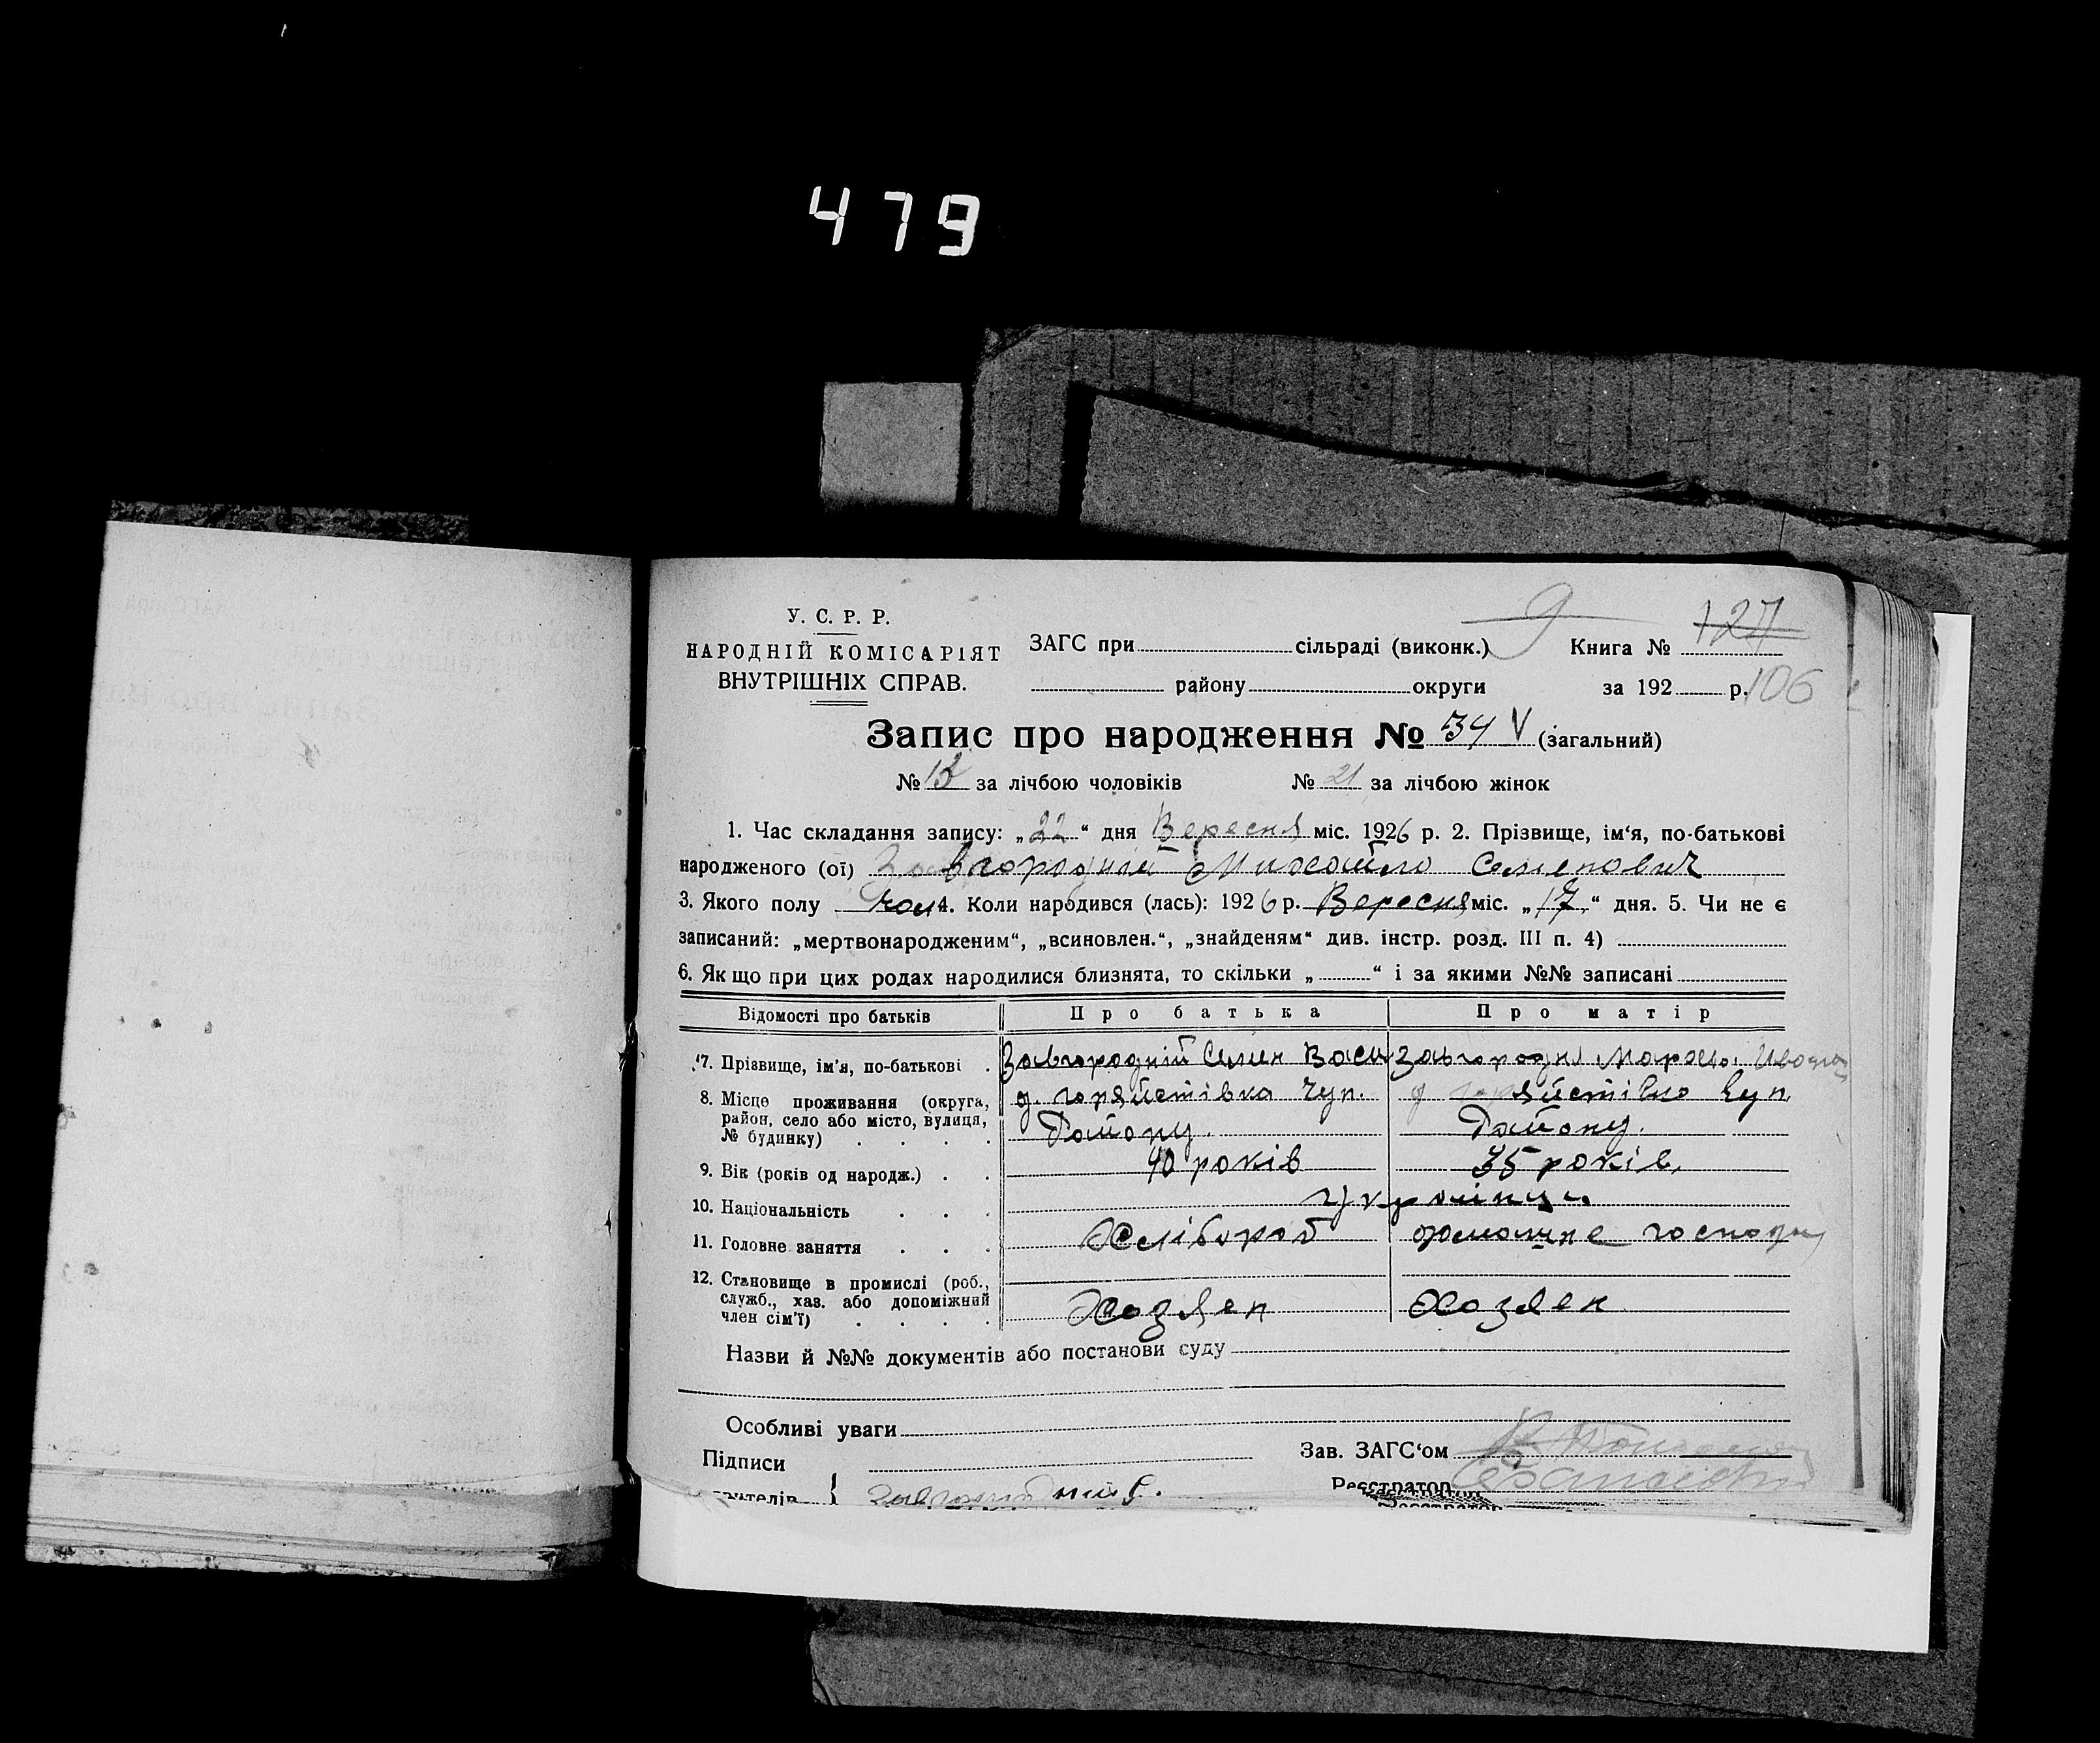 479
9
У. С. Р. Р.
НАРОДНІЙ КОМІСАРІЯТ
ВНУТРІШНІХ СПРАВ.
ЗАГС при сільраді (виконк.) Книга № 127
району округи за 192 р. 106
Запис про народження № 34 V (загальний)
№ 13 за лічбою чоловіків № 21 за лічбою жінок
1. Час складання запису: „22“ дня Вересня міс. 1926 р. 2. Прізвище, ім‘я, по-батькові
народженого (ої) Завгородній Михайло Семенович
3. Якого полу чол 4. Коли народився (лась): 1926 р. Вересня міс. „17“ дня. 5. Чи не є
записаний: „мертвонародженим“, „всиновлен.“, „знайденям“ див. інстр. розд. III п. 4)
6. Якщо при цих родах народилися близнята, то скільки „ “ і за якими №№ записані
Відомості про батьків Про батька Про матір
7. Прізвище, ім‘я, по-батькові . Завгородній Семен Васи Завгородня
8. Місце проживання (округа, район, село або місто, вулиця, № будинку) . . . . Чуп. Району. Чуп. Району.
9. Вік (років од народж.) . . 40 років 35 років
10. Національність . . . українці
11. Головне заняття . . . Хлібороб домашнє господ
12. Становище в промислі (роб., служб., хаз. або допоміжний член сім‘ї) . . . . Хозяен Хозяен
Назви й №№ документів або постанови суду
Особливі уваги
Підписи Зав. ЗАГС‘ом
Реєстратор